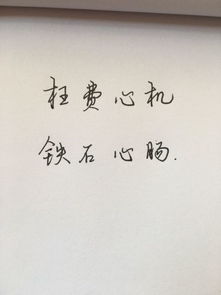 枉费心机
铁石心肠.